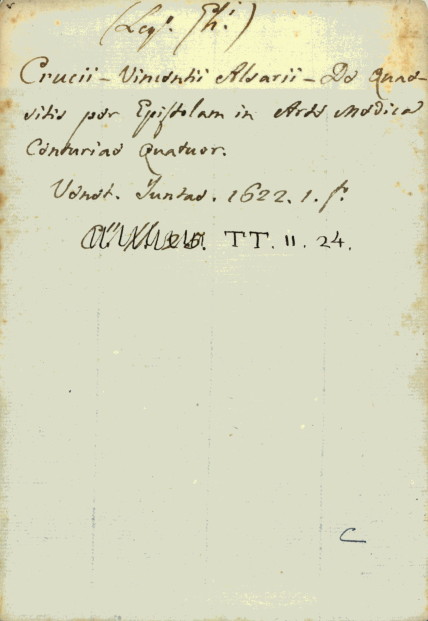 Crucii - Vincentii Alsarii - De Quae-
sitis per Epistolam in Arte Medica
Centuriae Quatuor.
Venet. Juntas. 1622. 1. f.
TT. II. 24.
C